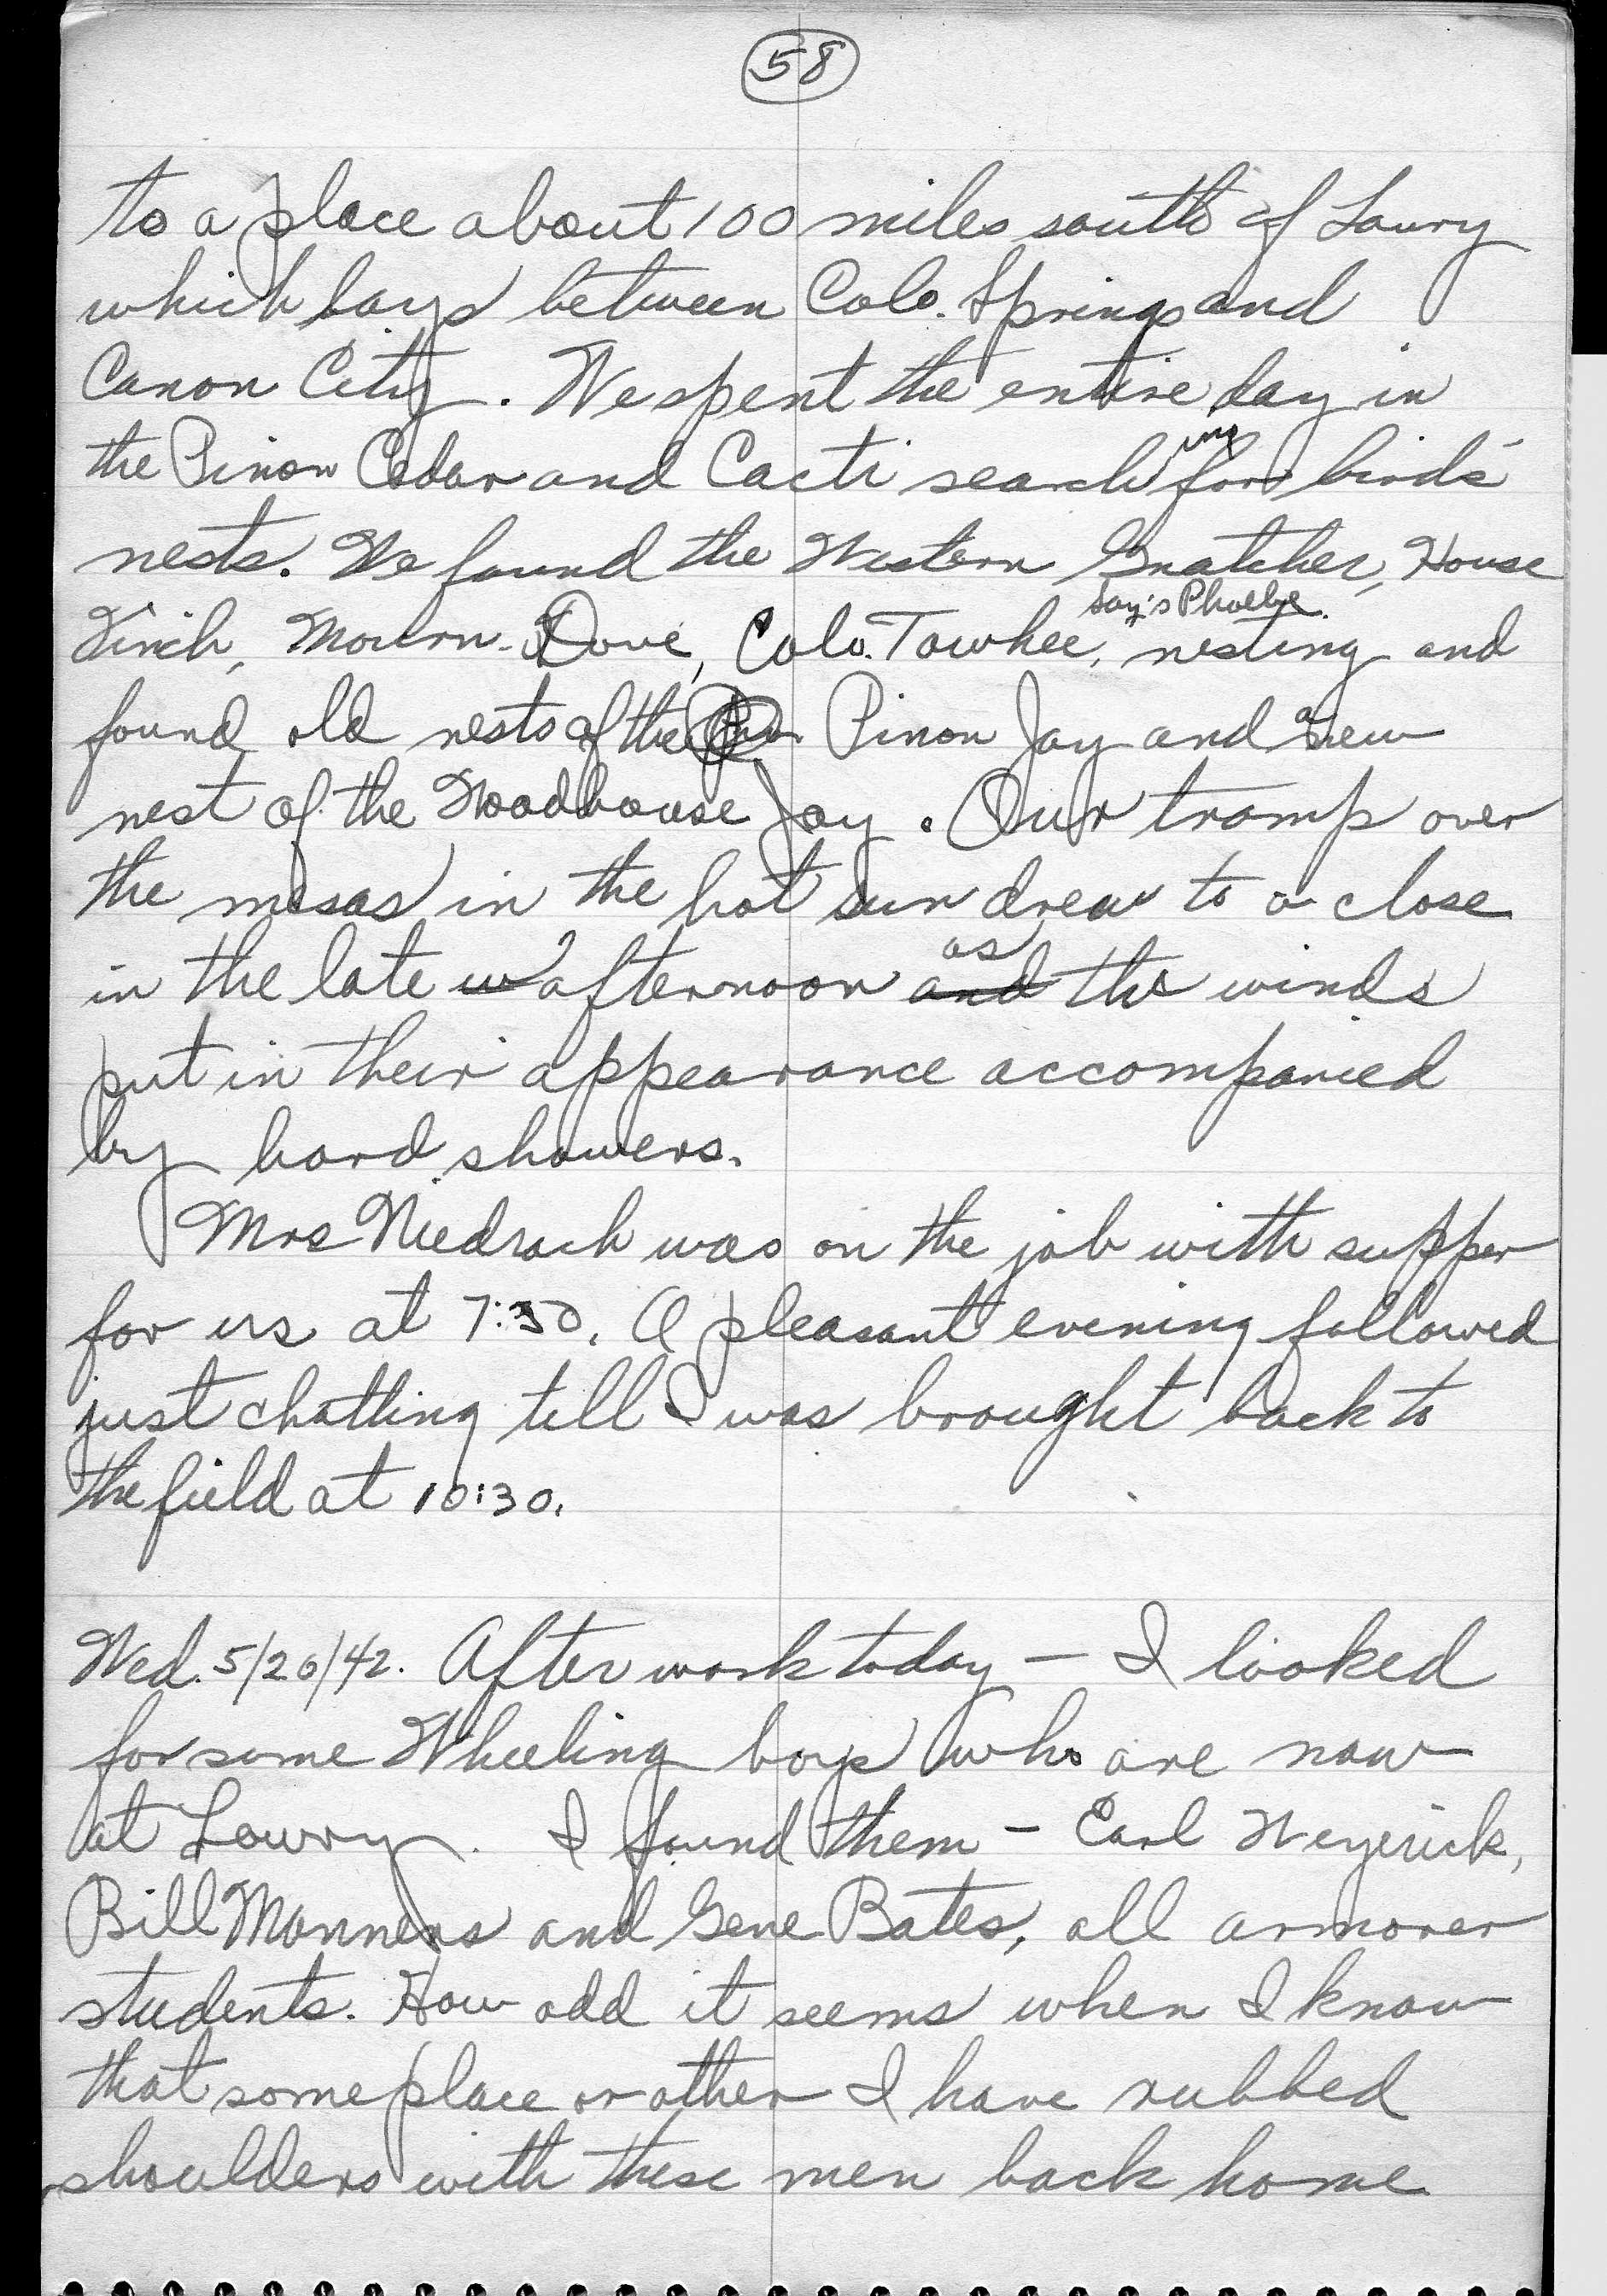 58
to a place about 100 miles south of Lowry
which lays between Colo. Springs and
Canon City. We spent the entire day in
the Pinon Cedar and Cacti searching for birds'
nests. We found the Western Gnatcher, House
Say's Phoebe
Finch, Mourn. Dove, Colo. Towhee, nesting and
found old nests of the Pinon Jay and a new
nest of the Woodhouse Jay. Our tramp over
the mesas in the hot sun drew to a close
as
in the late w afternoon and the winds
put in their appearance accompanied
by hard showers.
Mrs Niedrach was on the job with supper
for us at 7:30. A pleasant evening followed
just chatting till I was brought back to
the field at 10:30.
Wed. 5/20/42. After work today - I looked
for some Wheeling boys who are now
at Lowry. I found them - Earl Weyrick,
Bill Manners and Gene Bates, all armorer
students. How odd it seems when I know
that some place or other I have rubbed
shoulders with these men back home